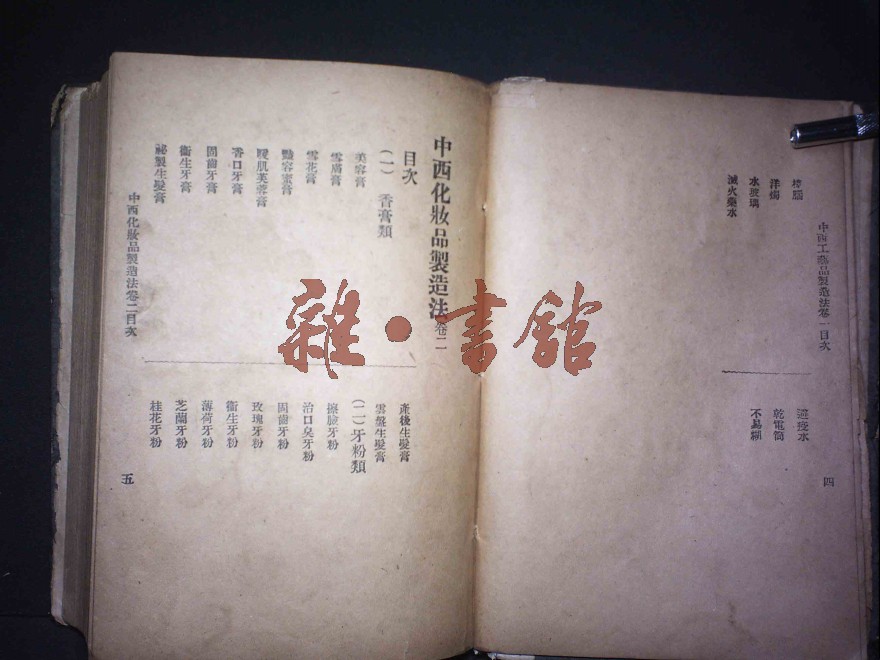 中西工藝品製造法卷一目次
樟腦
洋燭
水玻璃
滅火藥水
避疫水
乾電筒
不易糊
四
中西化妝品製造法卷二
目次
(一)香膏類
美容膏
雪膚膏
雪花膏
豔容蜜膏
暖肌芙蓉膏
香口牙膏
固齒牙膏
衞生牙膏
祕製生髮膏
產後生髮膏
雲盤生髮膏
(二)牙粉類
擦臉牙粉
治口臭牙粉
固齒牙粉
玫瑰牙粉
衞生牙粉
薄荷牙粉
芝蘭牙粉
桂花牙粉
中西化妝品製造法卷二目次
五
雜·書館